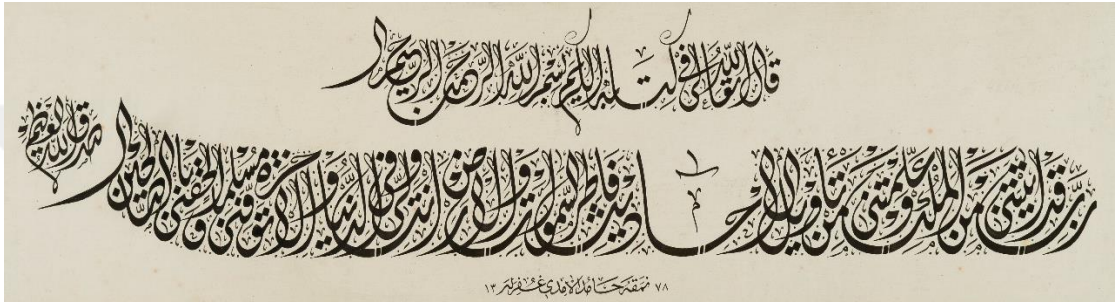 قال الله تعالى في كتابه الكريم بسم الله الرحمن الرحيم
رب قد آتيتني من الملك وعلمتني من تأويل الأحاديث فاطر السموات والأرض أنت وليي في الدنيا والآخرة توفني مسلما وألحقني بالصالحين
صدق الله العظيم
نمقه حامد الآمدي غفر له ١٣٧٨